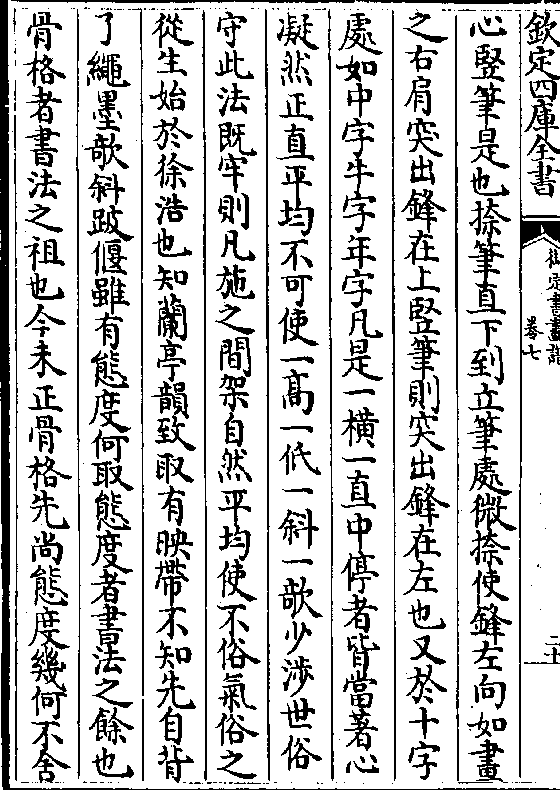 欽定四庫全書
御定書畫譜
卷七
二十
心竪筆是也捺筆直下到立筆處微捺使鋒左向如畫
之右肩突出鋒在上竪筆則突出鋒在左也又於十字
處如中字牛字年字凡是一橫一直中停者皆當著心
凝然正直平均不可使一高一低一斜一欹少渉世俗
守此法既牢則凡施之間架自然平均使不俗氣俗之
從生始於徐浩也知蘭亭韻致取有映帶不知先自背
了繩墨欹斜跛偃雖有態度何取態度者書法之餘也
骨格者書法之祖也今未正骨格先尚態度幾何不舍